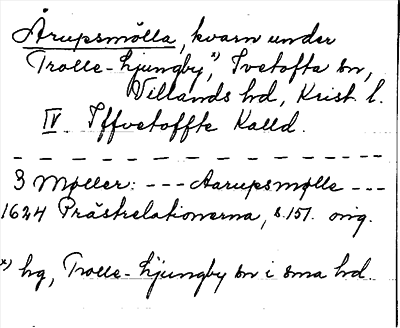 Årupsmölla, kvarn under
Trolle-Ljungby,ˣ⁾ Ivetofta sn,
Villands hd, Krist. l.
IV. Iffvetoffte Kalld.
— — — — — — — — — — — — — —
3 Møller: --- Aarupsmølle ---
1624 Prästrelationerna, s. 151. orig.
ˣ⁾ hg, Trolle-Ljungby sn i sma hd.